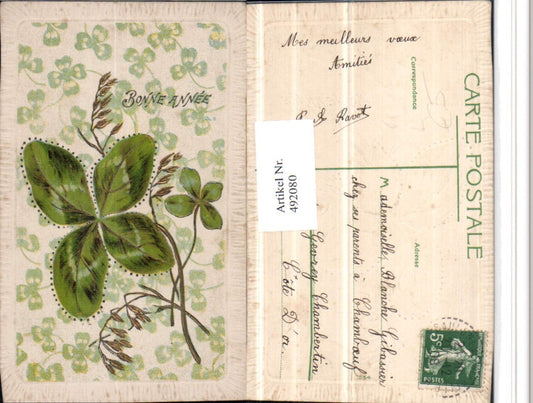 BONNE ANNÉE
Mes meilleurs vœux
Amitiés
Ravot
Correspondance
CARTE POSTALE
Adresse
Artikel Nr.
492080
Mademoiselle Blanche Gibassier
chez ses parents à Chambœuf
Gevrey Chambertin
Côte D'or
5c
POSTES